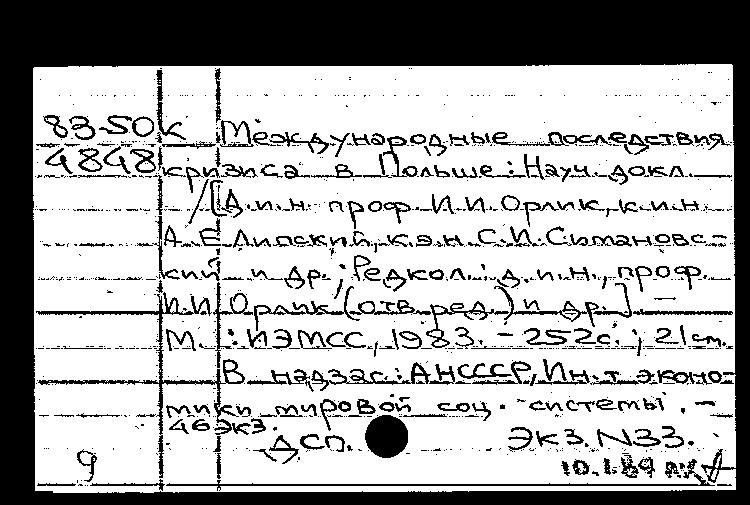 83-50К Международные последствия
4848 кризиса в Польше : Науч. докл.
/ [Д.и.н. проф. И.И. Орлик, к.и.н.
А.Е Липский, к.э.н. С.И. Симановс-
кий и др. ; Редкол. : д.и.н., проф.
И.И Орлик (отв. ред.) и др.] -
М. : ИЭМСС, 1983. - 252с. ; 21см.
В надзаг. : АНСССР, Ин-т эконо-
мики мировой соц. системы. -
46экз.
ДСП. Экз. N33.
9 10.1.89